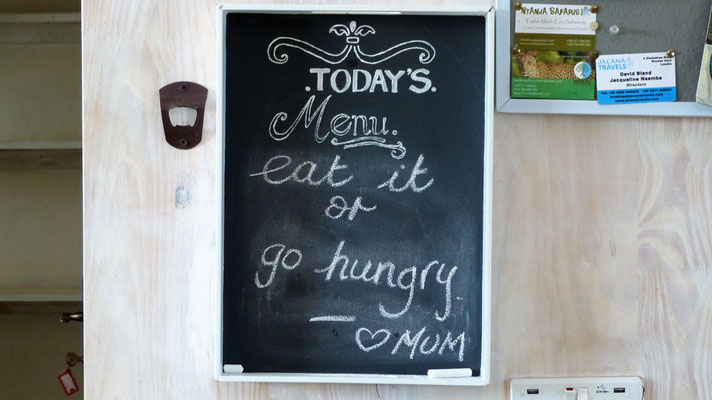 .TODAY'S.
Menu.
eat it
or
go hungry
♡ MUM
NYANJA SAFARIS
JACANA
TRAVELS
David Bland
Jacqueline Nsemba
Directors